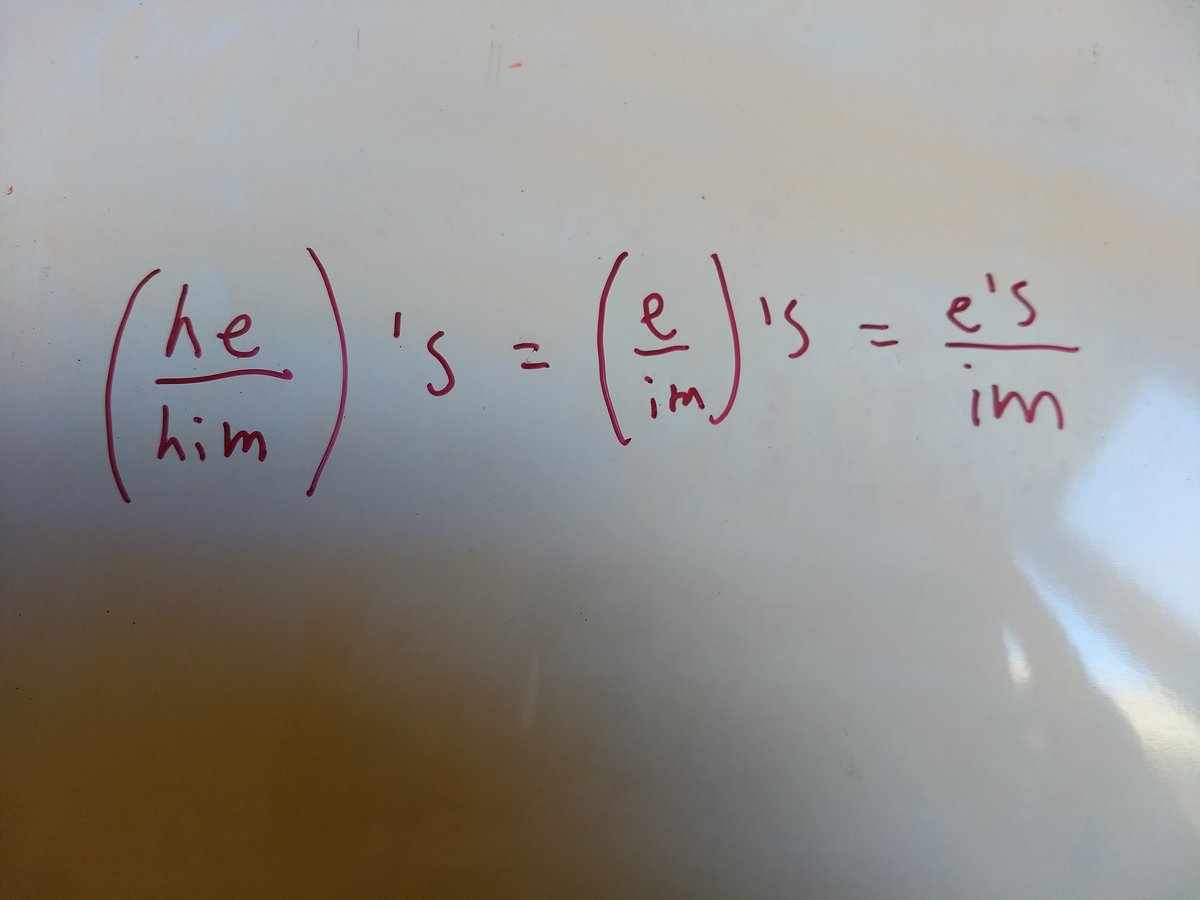 (he/him)'s = (e/im)'s = e's/im